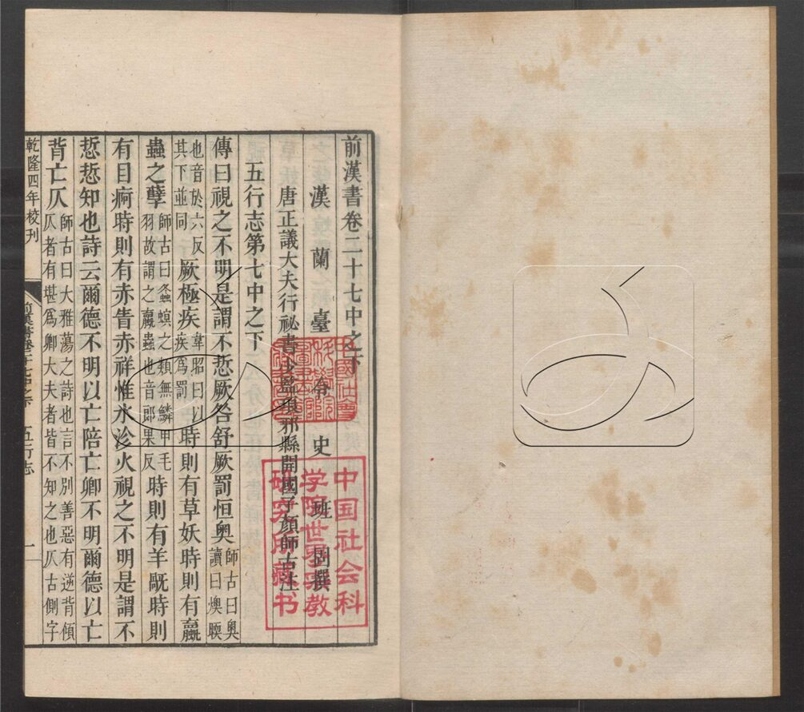 前漢書卷二十七中之下
漢蘭臺令史班固撰
唐正議大夫行祕書少監琅邪縣開國子顏師古注
五行志第七中之下
傳曰視之不明是謂不悊厥咎舒厥罰恒奧師古曰奧讀曰燠㬉
也音於六反其下並同厥極疾韋昭曰以疾爲罰時則有草妖時則有蠃
蟲之孽師古曰螽螟之類無鱗甲毛羽故謂之蠃蟲也音郎果反時則有羊旤時則
有目痾時則有赤眚赤祥惟水沴火視之不明是謂不
悊悊知也詩云爾德不明以亡陪亡卿不明爾德以亡
背亡仄師古曰大雅蕩之詩也言不別善惡有逆背傾仄者有堪爲卿大夫者皆不知之也仄古側字
乾隆四年校刊
前漢書卷二十七中之下 五行志 一
中国社会科
学院世界宗教
研究所藏书